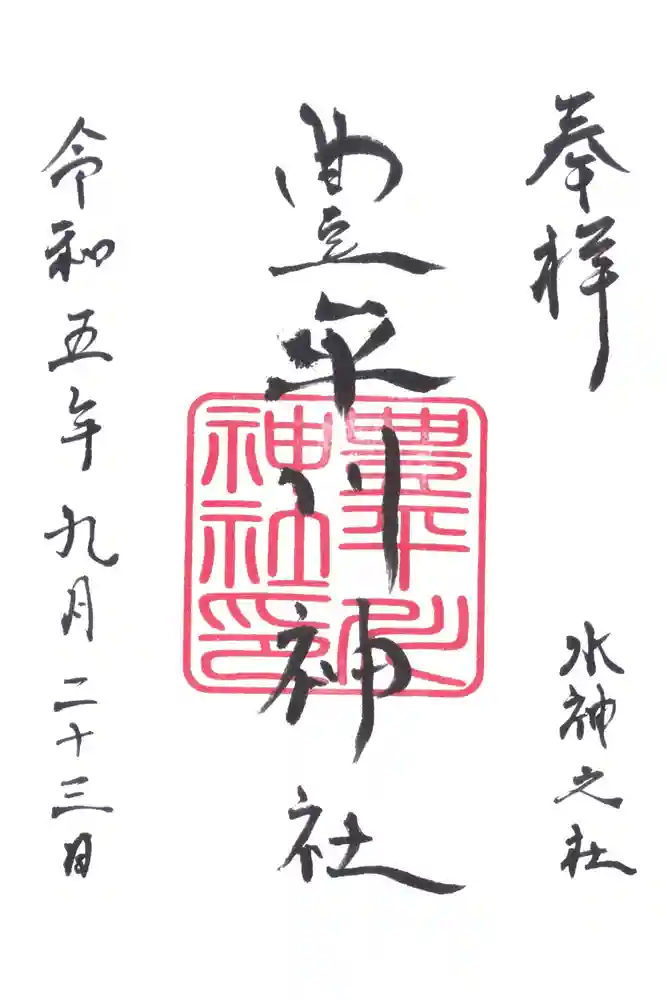 奉拝
水神之社
豊平川神社
豊平川
神社印
令和五年九月二十三日